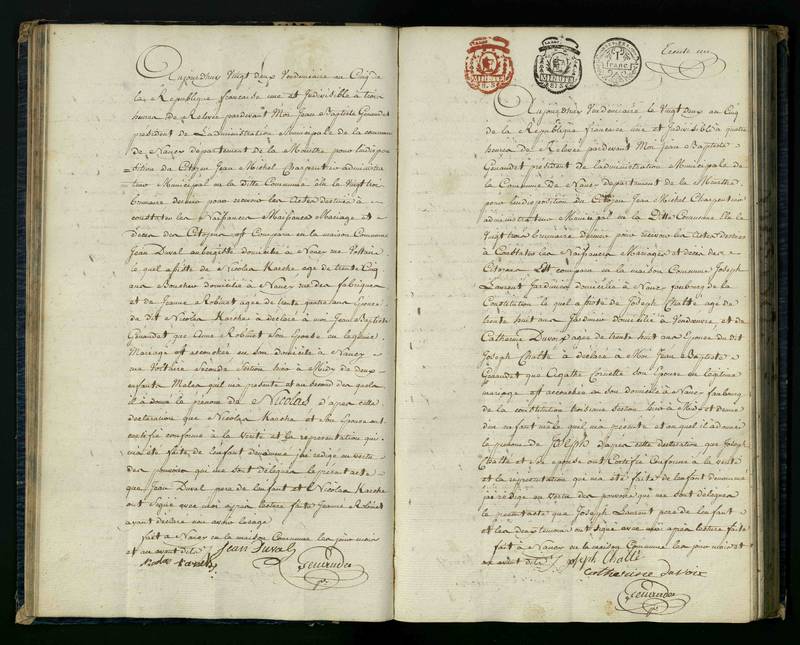 Aujourdhuy Vingt deux Vendemiaire au Cinq de
la République française une et Indivisible à trois
heures de Relevée pardevant Moi Jean Baptiste Genaudet
président de Ladministration Municipale de la commune
de Nancy departement de la Meurthe pour lindispo
sition du Citoyen Jean Michel Charpentier administra
teur Municipal en la Ditte Commune élu le Vingt trois
brumaire dernier pour recevoir les Actes destinés à
constater les Naissances Mariage et
deces des Citoyens est Comparu en la maison Commune
Jean Duval domicilié à Nancy rue Voltaire
le quel assisté de Nicolas Karche agé de trente Cinq
ans Boucher domicilié à Nancy rue des fabriques
et de Jeanne Robinet agée de trente quatre ans Epouse
du dit Nicolas Karche à déclaré à moi Jean Baptiste
Genaudet que Anne Robinet son Epouse en legitime
Mariage est accouchée en son domicile à Nancy
rue Voltaire seconde Section hier à Midy de deux
enfants Males qui ma présenté et au second des quels
il à donné le prénom de Nicolas d'apres cette
déclaration que Nicolas Karche et Son Epouse ont
certifié conforme à la Vérité et la représentation qui
ma été faite de lenfant denommé jai rédigé en vertu
des pouvoirs qui me sont délégués le présent acte
que Jean Duval pere de lenfant et Nicolas Karche
ont Signé avec moi après lecture faite Jeanne Robinet
ayant déclaré ne avoir lusage
fait à Nancy en la maison Commune les jour mois
et an avant dits Jean Duval
Genaudet
REP. FRA.
1 franc
Aujourdhuy Vendemiaire le Vingt deux an Cinq
de la République française une et Indivisible à quatre
heures de Relevée pardevant Moi Jean Baptiste
Genaudet président de ladministration Municipale de
la Commune de Nancy departement de la Meurthe
pour lindisposition du Citoyen Jean Michel Charpentier
administrateur Municipal en la Ditte Commune Elu le
Vingt trois brumaire dernier pour recevoir les Actes destinés
à Constater les Naissances Mariages et deces des
Citoyens Est comparu en la maison Commune Joseph
Laurent Jardinier domicilié à Nancy fauxbourg de la
Constitution le quel assisté de Joseph Chatté agé de
trente huit ans Jardinier domicilié à Vandœuvre, et de
Catherine Duvoix agée de trente huit ans Epouse du dit
Joseph Chatté à déclaré à Moi Jean Baptiste
Genaudet que Agathe son Epouse en legitime
mariage est accouchée en son domicile à Nancy fauxbourg
de la constitution troisieme section hier à Midi et demie
d'un enfant mâle quil ma présenté et au quel il à donné
le prénom de Joseph d'apres cette déclaration que Joseph
Chatté et son epouse ont Certifié Conforme à la vérité
et la représentation qui ma été faite de lenfant denommé
jai rédigé en vertu des pouvoirs qui me sont délégués
le présent acte que Joseph Laurent pere de lenfant
et les deux temoins ont signé avec moi après lecture faite
fait à Nancy en la maison Commune les jour mois et
an avant dits Joseph Chatté
Catherine Duvoix
Genaudet